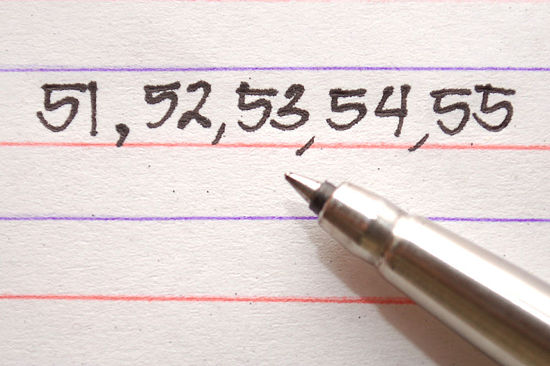 51, 52, 53, 54, 55